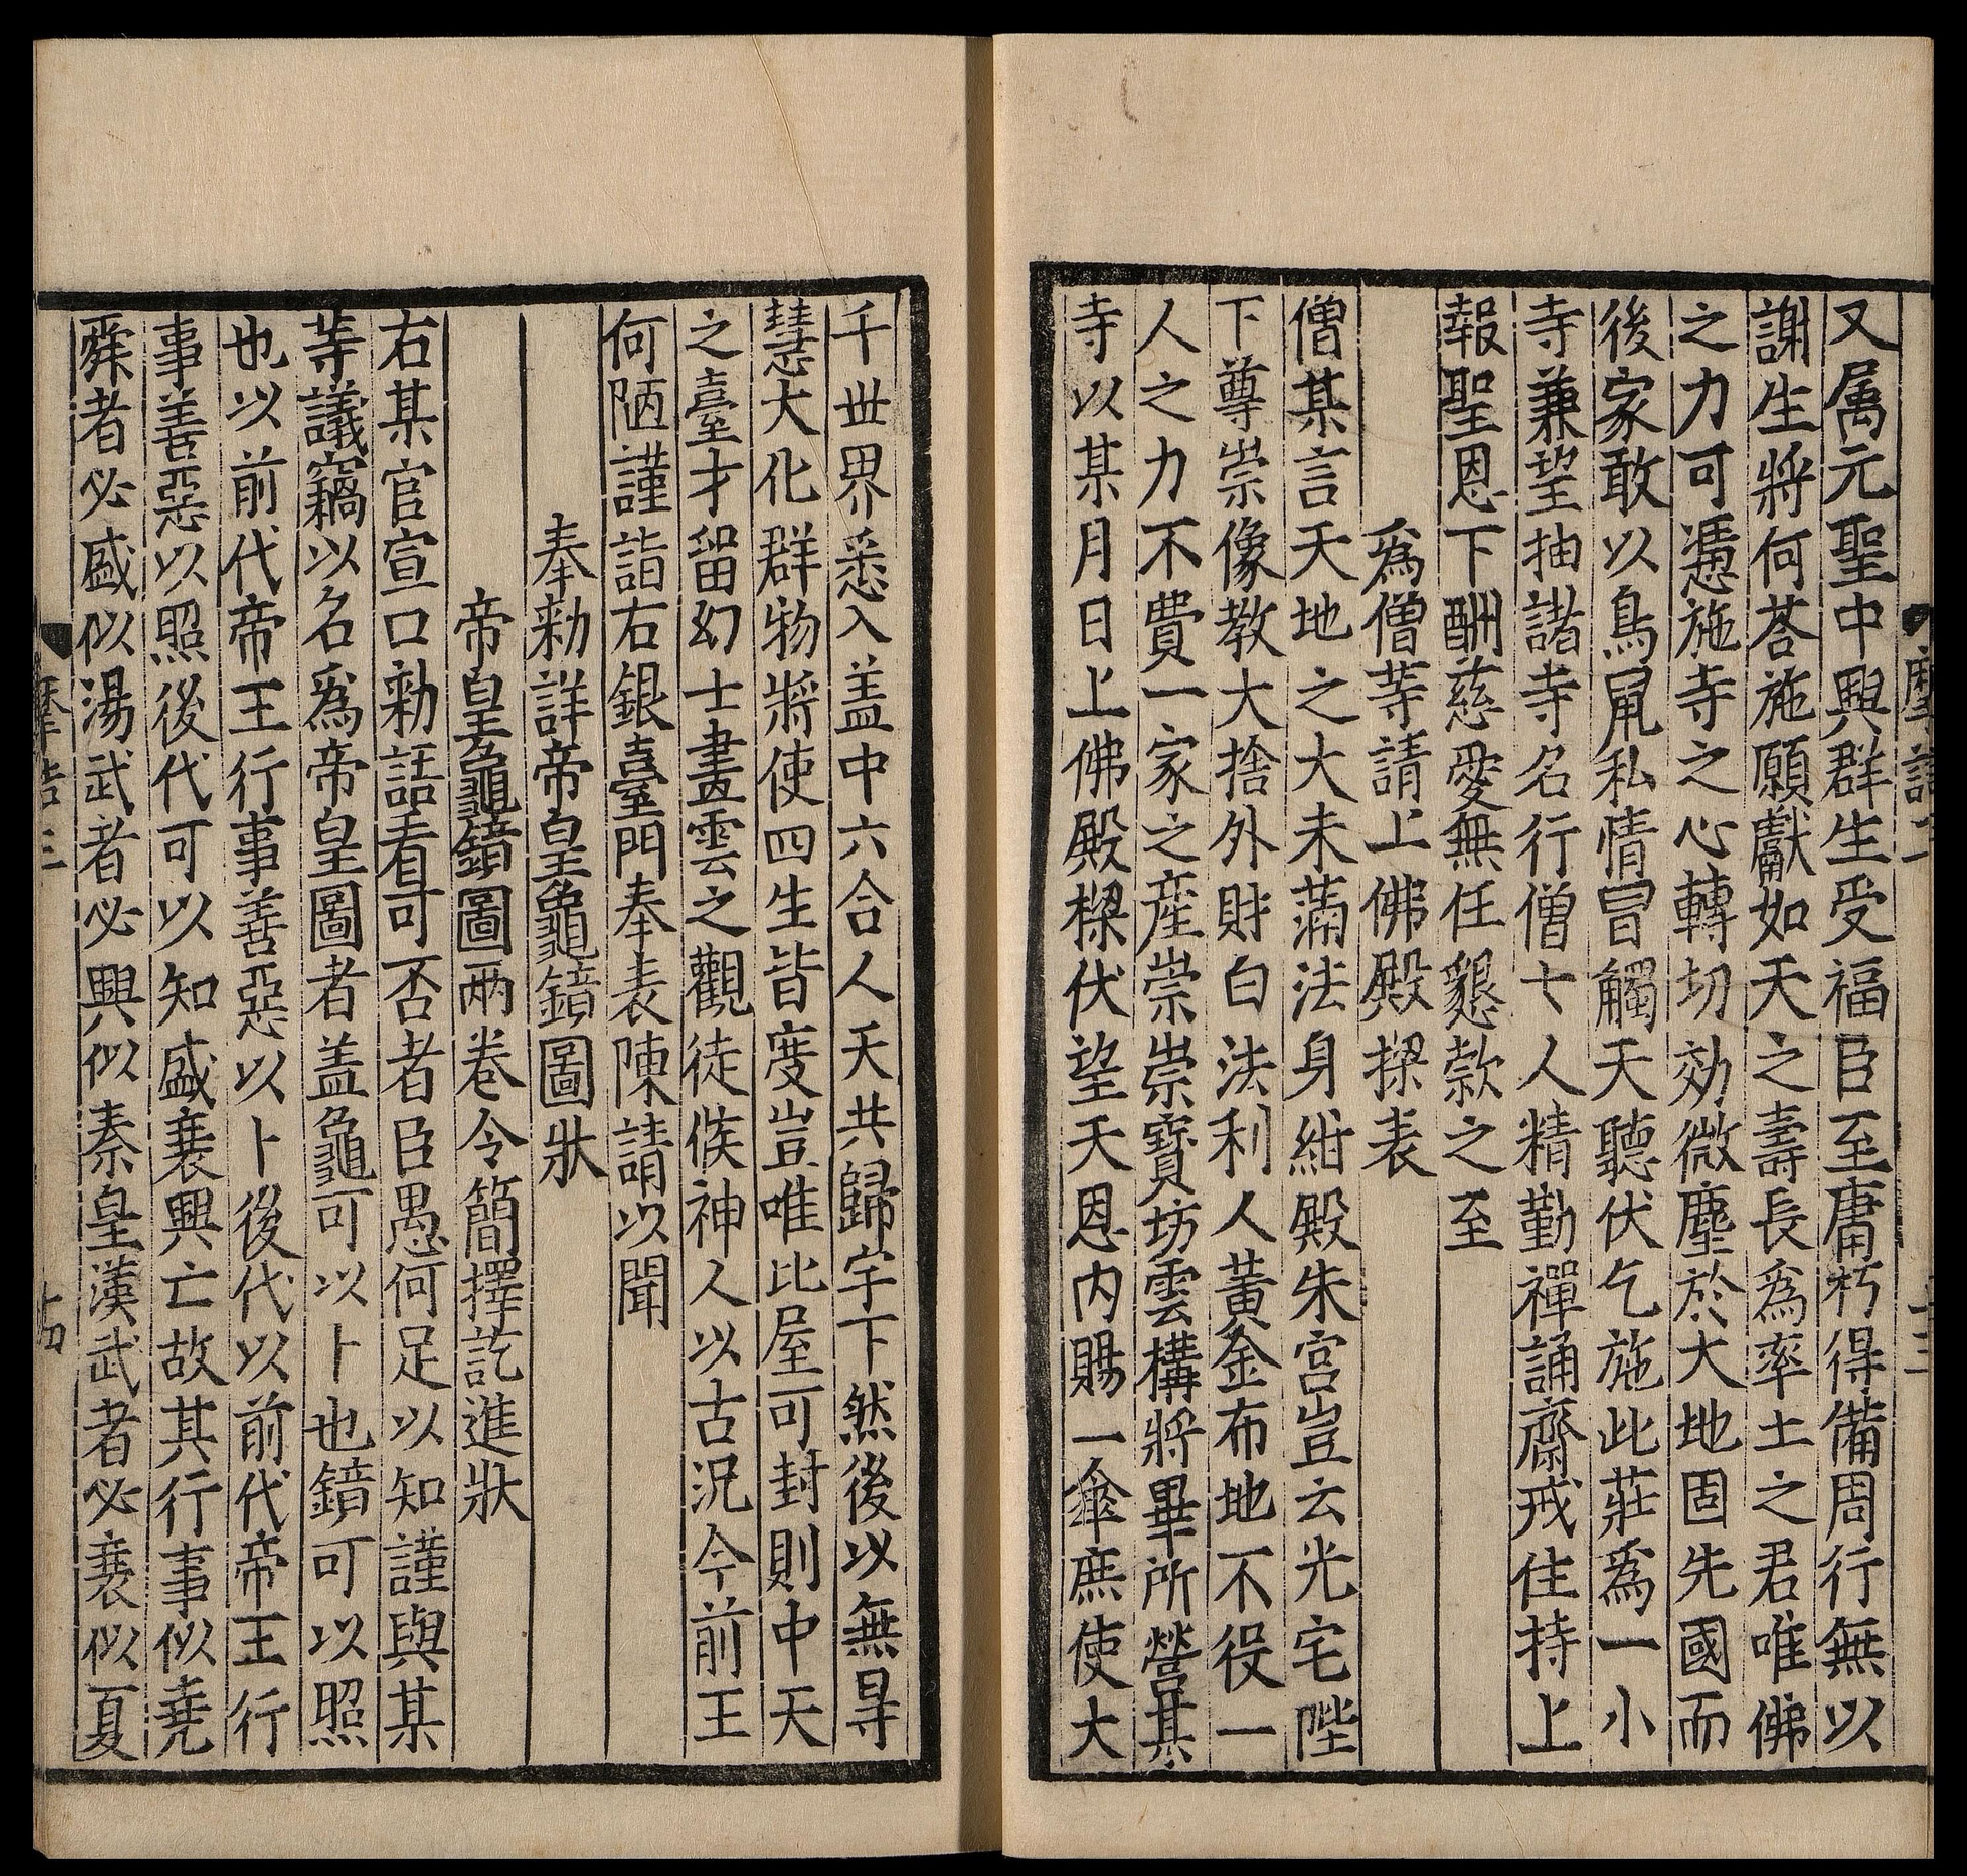 又属元聖中興群生受福臣至庸朽得備周行無以
謝生將何荅施願獻如天之壽長爲率土之君唯佛
之力可憑施寺之心轉切効微塵於大地固先國而
後家敢以鳥鼠私情冒觸天聽伏乞施此莊爲一小
寺兼望抽諸寺名行僧七人精勤禪誦齋戒住持上
報聖恩下酬慈愛無任懇款之至
爲僧等請上佛殿梁表
僧某言天地之大未滿法身紺殿朱宮豈云光宅陛
下尊崇像教大捨外財白法利人黃金布地不役一
人之力不費一家之産崇崇寶坊雲構將畢所營其
寺以某月日上佛殿樑伏望天恩内賜一傘庶使大
千世界悉入盖中六合人天共歸宇下然後以無㝵
慧大化群物將使四生皆度豈唯比屋可封則中天
之臺才留幻士畫雲之觀徒候神人以古況今前王
何陋謹詣右銀臺門奉表陳請以聞
奉勑詳帝皇龜鏡圖狀
帝皇龜鏡圖兩卷令簡擇訖進狀
右某官宣口勑語看可否者臣愚何足以知謹與某
等議竊以名爲帝皇圖者盖龜可以卜也鏡可以照
也以前代帝王行事善惡以卜後代以前代帝王行
事善惡以照後代可以知盛衰興亡故其行事似堯
舜者必盛似湯武者必興似秦皇漢武者必衰似夏